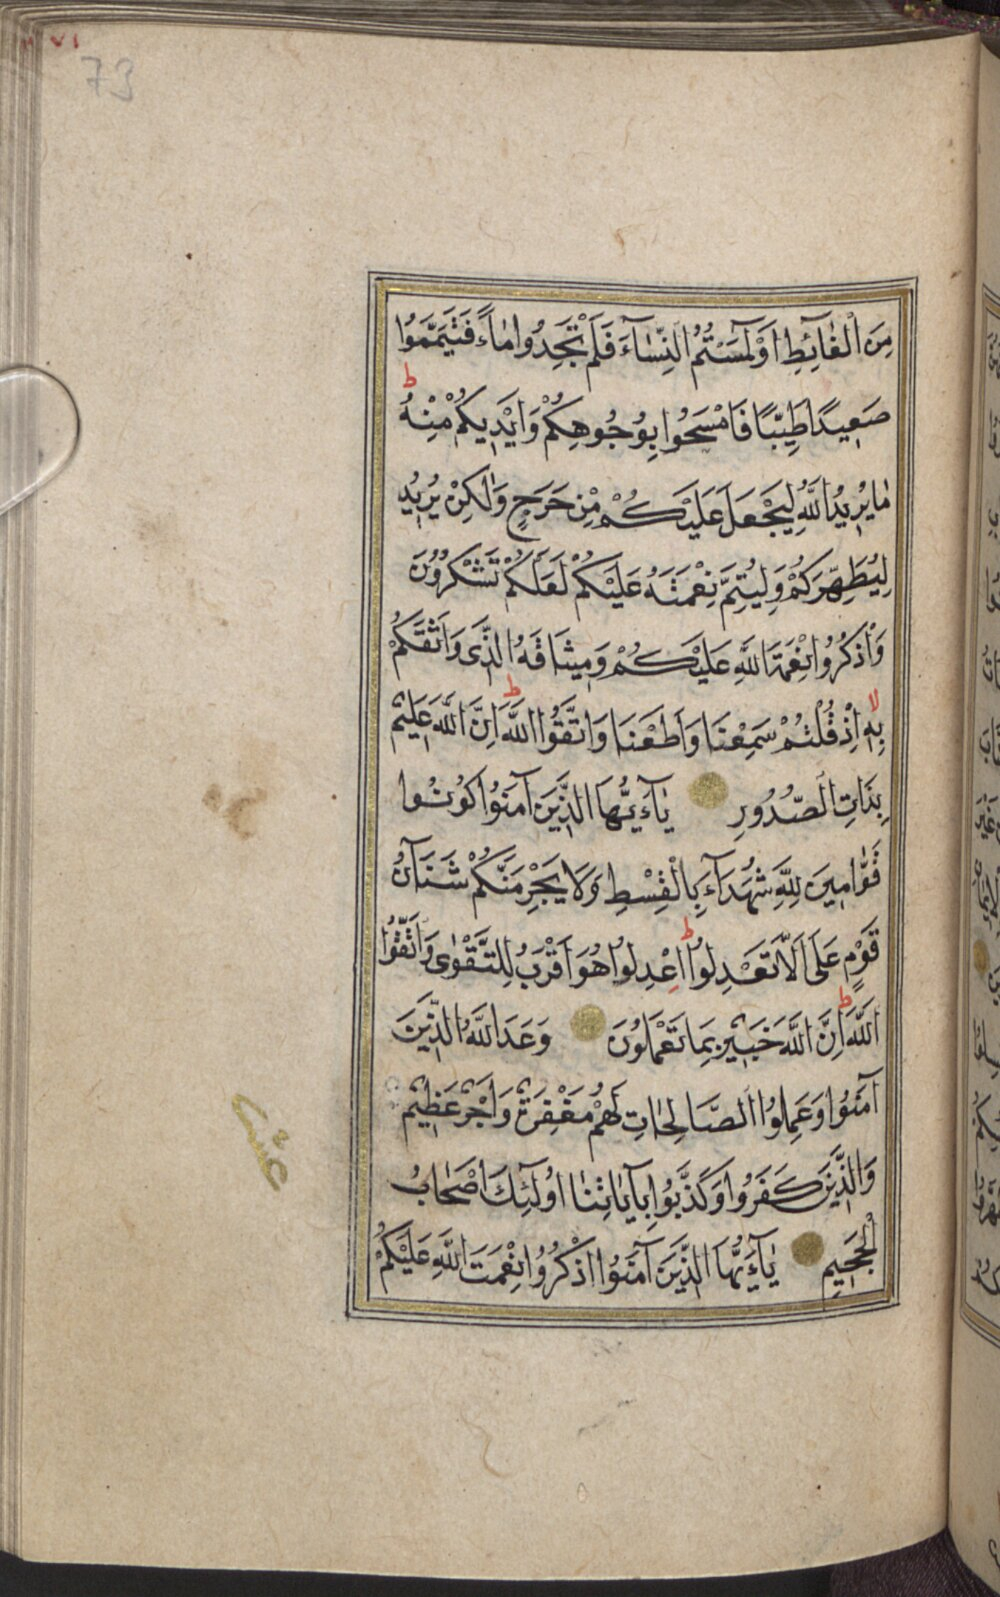 ٧١
73
مِنَ الْغَائِطِ اَوْ لٰمَسْتُمُ النِّسَاءَ فَلَمْ تَجِدُوا مَاءً فَتَيَمَّمُوا
ط
صَعِيدًا طَيِّبًا فَامْسَحُوا بِوُجُوهِكُمْ وَاَيْدِيكُمْ مِنْهُ
مَا يُرِيدُ اللّٰهُ لِيَجْعَلَ عَلَيْكُمْ مِنْ حَرَجٍ وَلٰكِنْ يُرِيدُ
لِيُطَهِّرَكُمْ وَلِيُتِمَّ نِعْمَتَهُ عَلَيْكُمْ لَعَلَّكُمْ تَشْكُرُونَ
وَاذْكُرُوا نِعْمَةَ اللّٰهِ عَلَيْكُمْ وَمِيثَاقَهُ الَّذِى وَاثَقَكُمْ
لا ط
بِهِ اِذْ قُلْتُمْ سَمِعْنَا وَاَطَعْنَا وَاتَّقُوا اللّٰهَ اِنَّ اللّٰهَ عَلِيمٌ
بِذَاتِ الصُّدُورِ يَآءَيُّهَا الَّذِينَ آمَنُوا كُونُوا
قَوَّامِينَ لِلّٰهِ شُهَدَآءَ بِالْقِسْطِ وَلَا يَجْرِمَنَّكُمْ شَنَآنُ
ط
قَوْمٍ عَلَى اَلَّا تَعْدِلُوا اِعْدِلُوا هُوَ اَقْرَبُ لِلتَّقْوٰى وَاتَّقُوا
ط
اللّٰهَ اِنَّ اللّٰهَ خَبِيرٌ بِمَا تَعْمَلُونَ وَعَدَ اللّٰهُ الَّذِينَ
آمَنُوا وَعَمِلُوا الصَّالِحَاتِ لَهُمْ مَغْفِرَةٌ وَاَجْرٌ عَظِيمٌ
عشر
وَالَّذِينَ كَفَرُوا وَكَذَّبُوا بِآيَاتِنَا اُولَٰئِكَ اَصْحَابُ
الْجَحِيمِ يَآءَيُّهَا الَّذِينَ آمَنُوا اذْكُرُوا نِعْمَتَ اللّٰهِ عَلَيْكُمْ